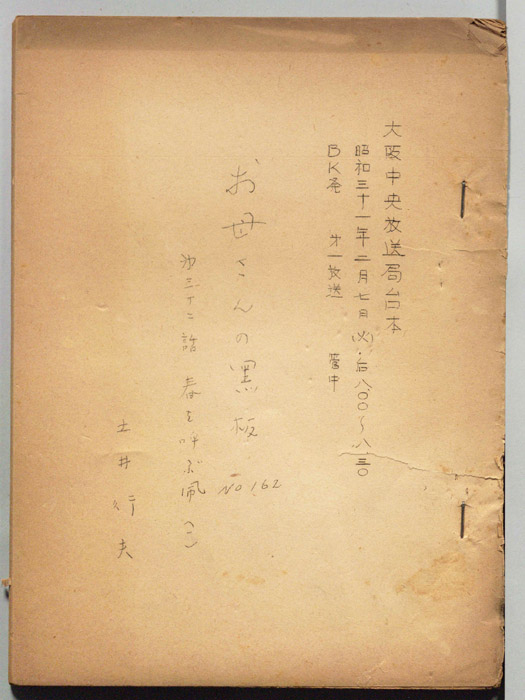 大阪中央放送局台本
昭和三十一年二月七日(火)・后八.00~八.三〇
BK発 才一放送 管中
お母さんの黒板 NO 162
才三十二話 春を呼ぶ風(一)
土井行夫